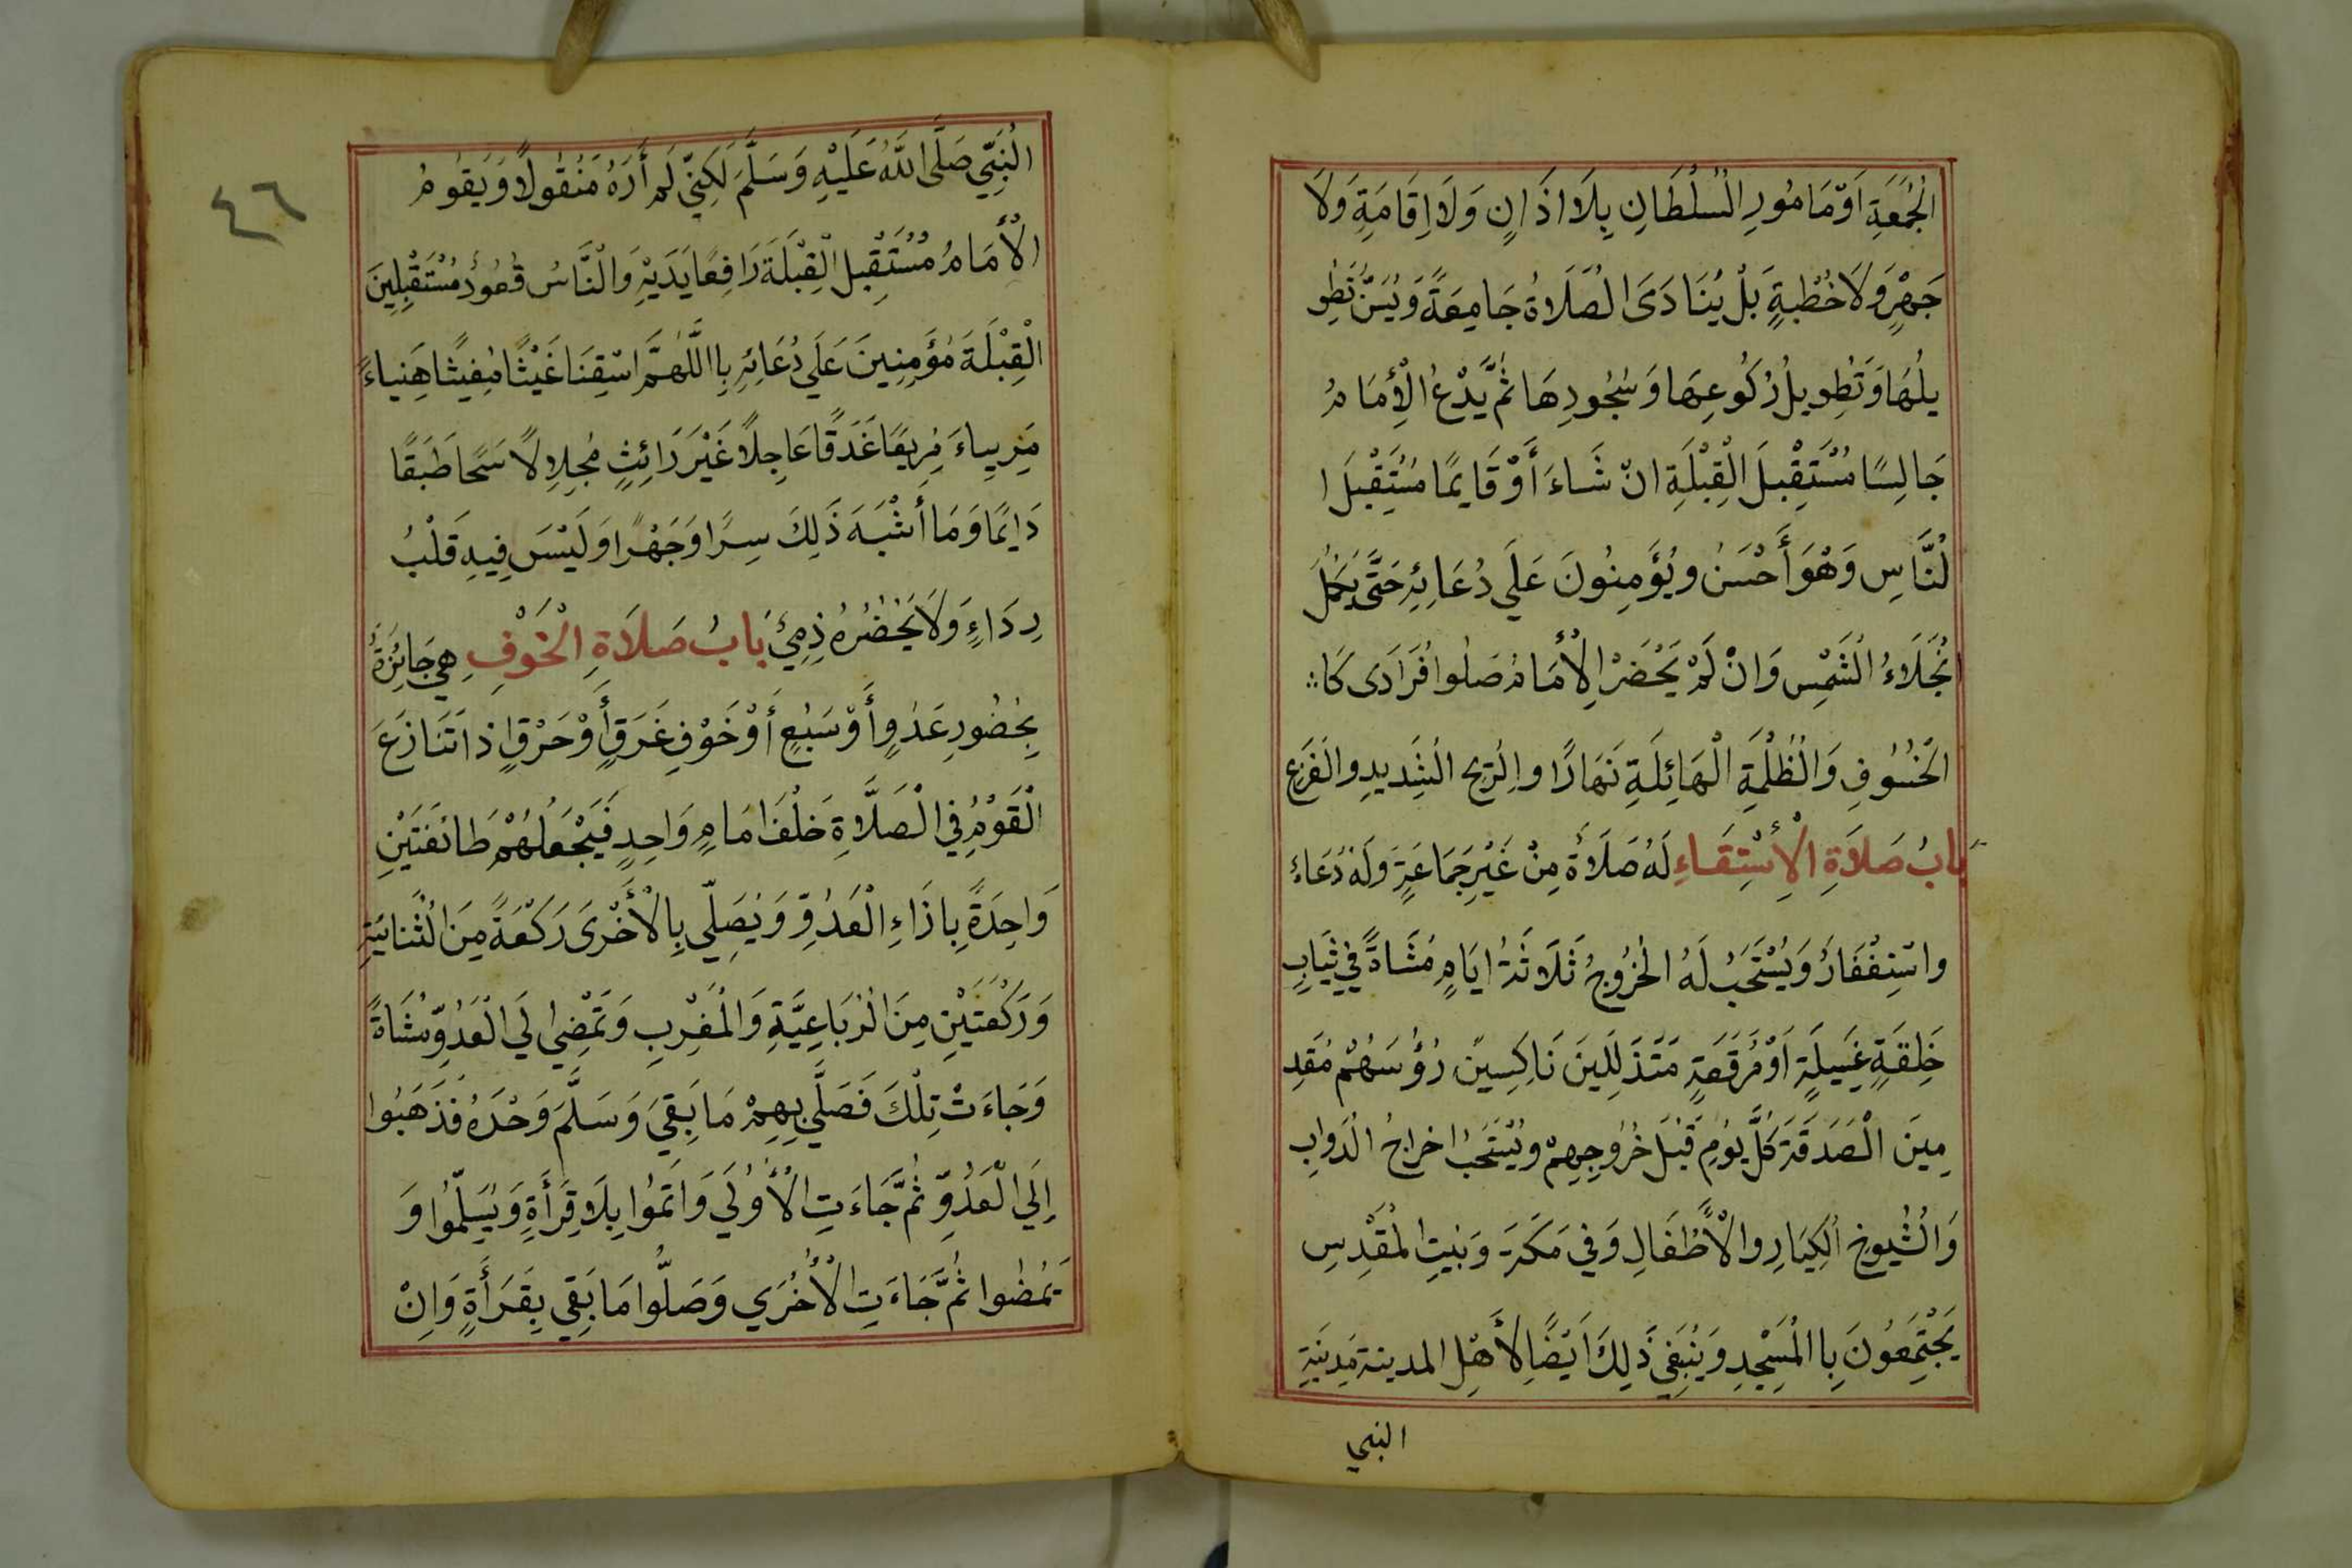 الْجُمُعَةِ اَوْ مَامُورِ الْسُلْطَانِ بِلَا اذَانٍ وَلَا اِقَامَةِ وَلَا
جَهْرٍ وَلَا خُطْبَةٍ بَلْ يُنَادَىَ الْصَلَاةُ جَامِعَةً وَيُسَنُّ تَطْوِ
يلُهَا وَتَطْوِيلُ رُكُوعِهَا وَسُجُودِهَا ثُمَّ يَدْعُ الْأِمَامُ
جَالِسًا مُسْتَقْبِلَ الْقِبْلَةِ انْ شَاءَ أَوْ قَايِمًا مُسْتَقْبِلَ ا
لْنَّاسِ وَهُوَ أَحْسَنُ ويُؤَمِنُونَ عَلَي دُعَائِهِ حَتَّي يَكْمُلَ
انْجِلَاءُ الْشَمْسِ وَانْ لَمْ يَحْضَرْ الْأِمَامُ صَلُوا فُرَادَى كَا
لْخُسُوفِ وَالْظُلْمَةِ الْهَائِلَةِ نَهَارًا والِرْيحِ الْشَدِيدِ والْفَزَعِ
بَابُ صَلَاةِ الْأِسْتِقَاءِ لَهُ صَلَاةٌ مِنْ غَيْرِ جَمَاعَةٍ وَلَهُ دُعَاءٌ
واسْتِغْفَارٌ وَيُسْتَحَبُ لَهُ الْخُرُوجُ ثَلَاثَةُ ايَامٍ مُشَاةً فِي ثِيَابِ
خَلِقَةٍ غَسِيلَةٍ اَوْ مُرَقَعَةٍ مَتَذَلِلِينَ نَاكِسِينَ رُؤُسَهُمْ مُقَدِ
مِينَ الْصَدَقَةَ كُلَّ يَوْمِ قَبْلَ خُرُوجِهِمْ ويُسْتَحَبُ اخراجُ الْدَوابِ
وَالْشُيوخِ الْكِبَارِ والْأَطْفَالِ وَفِي مَكَةَ وَبَيْتِ الْمُقَدِسِ
يَجْتَمِعُونَ بِا الْمَسْجِدِ وَيَنْبَغِي ذَلِكَ اَيْضًا لِأَهْلِ المدينة مَدِينَةِ
النبي
٤٦
الْنَبِيِّ صَلَّي اللَّهُ عَلَيْهِ وَسَلَّمَ لَكِنِّي لَمْ أَرَهُ مَنْقُولًا وَيَقُومُ
الْأِمَامُ مُسْتَقْبِلَ الْقِبْلَةَ رَافِعًا يَدَيْهِ وَالْنَّاسُ قُعُودٌ مُسْتَقْبِلِينَ
الْقِبْلَةَ مُؤَمِنِينَ عَلَي دُعَائِهِ بِا اللَّهُمَّ اسْقِنَا غَيْثًا مُغِيثًا هَنِياءً
مَرِيياءَ مُرِيعًا غَدَقًا عَاجِلًا غَيْرَ رَائِثٍ مُجِلِلًا سَحًا طَبَقًا
دَايِمًا وَمَا أَشْبَهَ ذَلِكَ سِرًا وَجَهْرًا وَلَيْسَ فِيهِ قَلْبُ
رِدَاءٍ وَلَا يَحْضُرُهُ ذِمِيٌ بَابُ صَلَاةِ الْخَوْفِ هِيَ جَائِزَةٌ
بِحُضُورِ عَدُوٍ أَوْ سَبُعٍ أَوْ خَوْفِ غَرَقٍ أَوْ حَرْقٍ اِذا تَنَازَعَ
الْقَوْمُ فِي الْصَلَّاةِ خَلْفَ امَامٍ وَاحِدٍ فَيَجْعَلُهُمْ طَائفَتَيْنِ
وَاحِدَةً بِازَاءِ الْعَدُوِّ وَيُصَلِّي بِالْأُخْرَى رَكْعَةً مِنَ الْثَنائيَةِ
وَرَكْعَتَيْنِ مِنَ الْرُبَاعِيَّةِ وَالْمَغْرِبِ وَتَمْضِي الَي الْعَدُوِّ مُشَاةً
وَجَاءَتْ تِلْكَ فَصَلَّي بِهِمْ مَا بَقِيَ وَسَلَّمَ وَحْدَهُ فَذَهَبُوا
اِلَي الْعَدُوِّ ثُمَّ جَاءَتِ الْأُوْلَي وَاتَمُوا بِلَا قِرَأَةٍ وَيُسَلِّمُوا وَ
يَمْضُوا ثُمَّ جَاءَتِ الْأُخْرَي وَصَلُّوا مَا بَقِي بِقَرَأَةٍ وَاِنْ